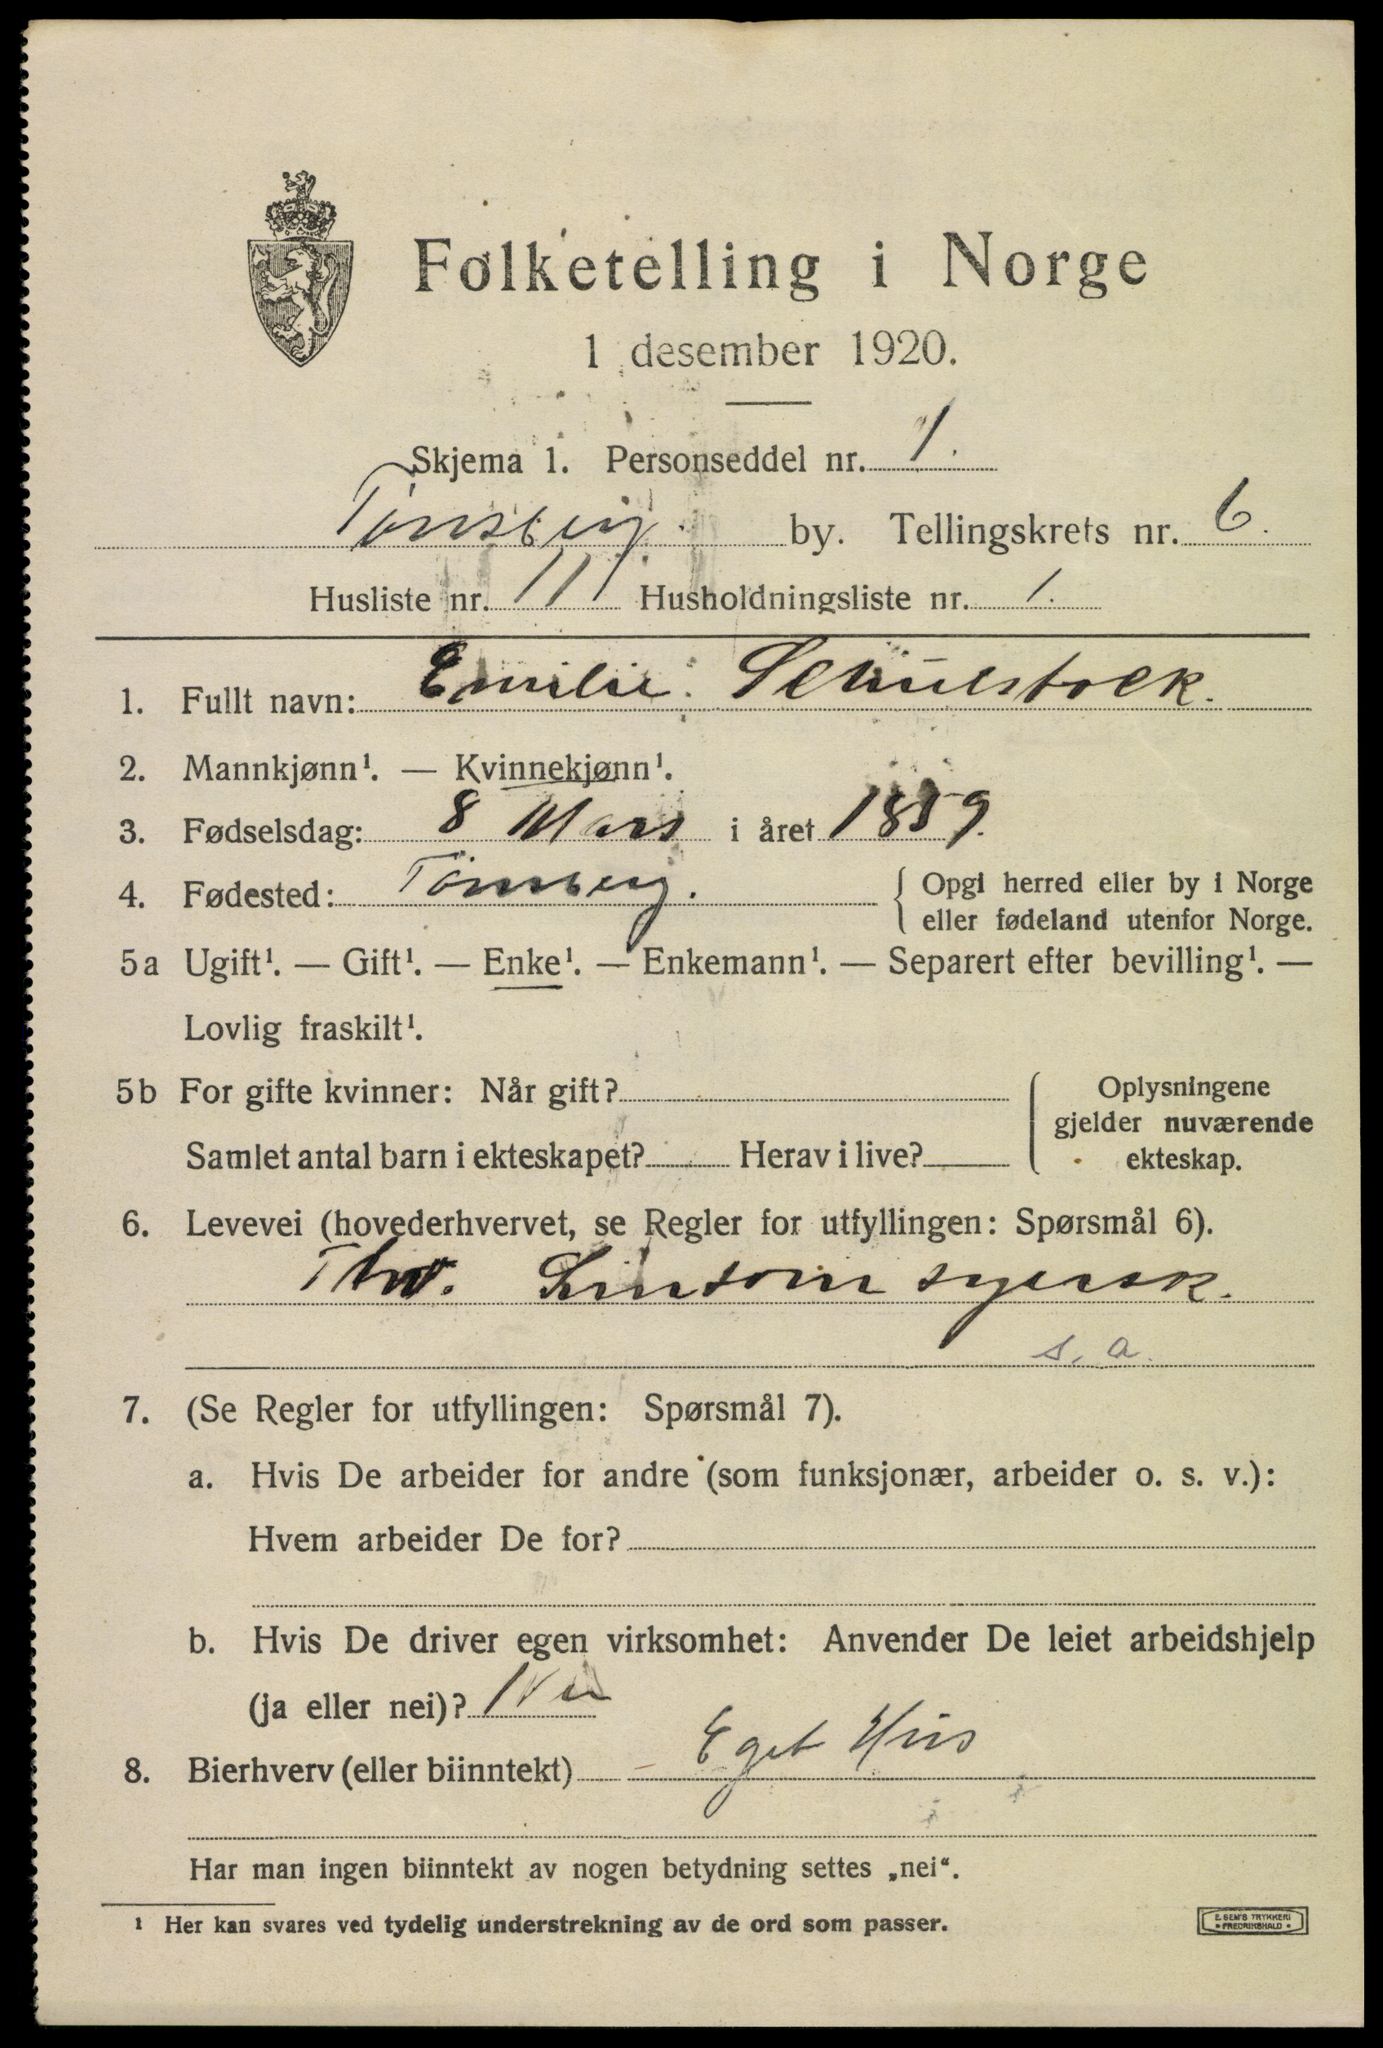 Folketelling i Norge
1 desember 1920.
Skjema 1. Personseddel nr. 1.
Tønsberg by. Tellingskrets nr. 6.
Husliste nr. 11 Husholdningsliste nr. 1.
1. Fullt navn: Emilie Schulstock.
2. Mannkjønn¹. — Kvinnekjønn¹.
3. Fødselsdag: 8 Mars i året 1859.
4. Fødested: Tønsberg. { Opgi herred eller by i Norge
eller fødeland utenfor Norge.
5a Ugift¹. — Gift¹. — Enke¹. — Enkemann¹. — Separert efter bevilling¹. —
Lovlig fraskilt¹.
5b For gifte kvinner: Når gift? { Oplysningene
gjelder nuværende
Samlet antal barn i ekteskapet? Herav i live? ekteskap.
6. Levevei (hovederhvervet, se Regler for utfyllingen: Spørsmål 6).
syersk.
s. a.
7. (Se Regler for utfyllingen: Spørsmål 7).
a. Hvis De arbeider for andre (som funksjonær, arbeider o. s. v.):
Hvem arbeider De for?
b. Hvis De driver egen virksomhet: Anvender De leiet arbeidshjelp
(ja eller nei)? Nei
8. Bierhverv (eller biinntekt) Eget Hus
Har man ingen biinntekt av nogen betydning settes „nei“.
¹ Her kan svares ved tydelig understrekning av de ord som passer.
E. SEM'S TRYKKERI
• FREDRIKSHALD •